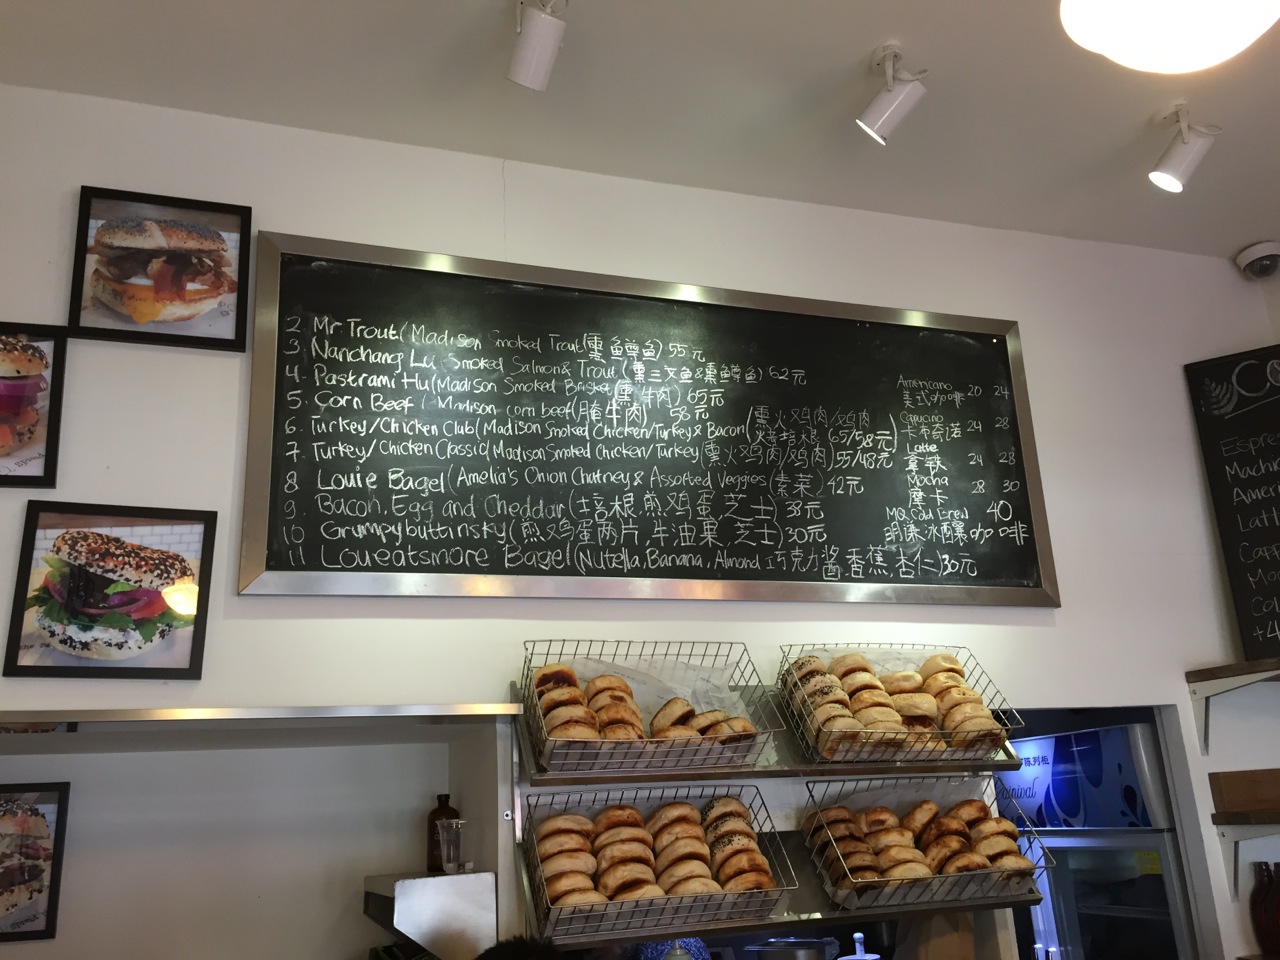 2. Mr Trout (Madison Smoked Trout (熏鱼鳟鱼) 55元
3. Nanchang Lu Smoked Salmon & Trout (熏三文鱼&熏鳟鱼) 62元
4. Pastrami Hu (Madison Smoked Brisket (熏牛肉) 65元
5. Corn Beef (Madison corn beef (腌牛肉) 58元
6. Turkey/Chicken Club (Madison Smoked Chicken/Turkey & Bacon (熏火鸡肉/鸡肉 烤培根 65/58元)
7. Turkey/Chicken Classic (Madison Smoked Chicken/Turkey (熏火鸡肉/鸡肉) 55/48元
8 Louie Bagel (Amelia's Onion Chutney & Assorted Veggies (素菜) 42元
9. Bacon, Egg and Cheddar (培根, 煎鸡蛋, 芝士) 38元
10 Grumpybuttinsky (煎鸡蛋两片, 牛油果, 芝士) 30元
11 Loueatsmore Bagel (Nutella, Banana, Almond 巧克力酱, 香蕉, 杏仁) 30元
Americano
美式咖啡 20 24
Capucino
卡布奇诺 24 28
Latte
拿铁 24 28
Mocha
摩卡 28 30
MQ Cold Brew 40
明谦冰酿咖啡
CO
Espre
Machi
Ameri
Latt
Capp
Mo
Col
+4
陈列柜